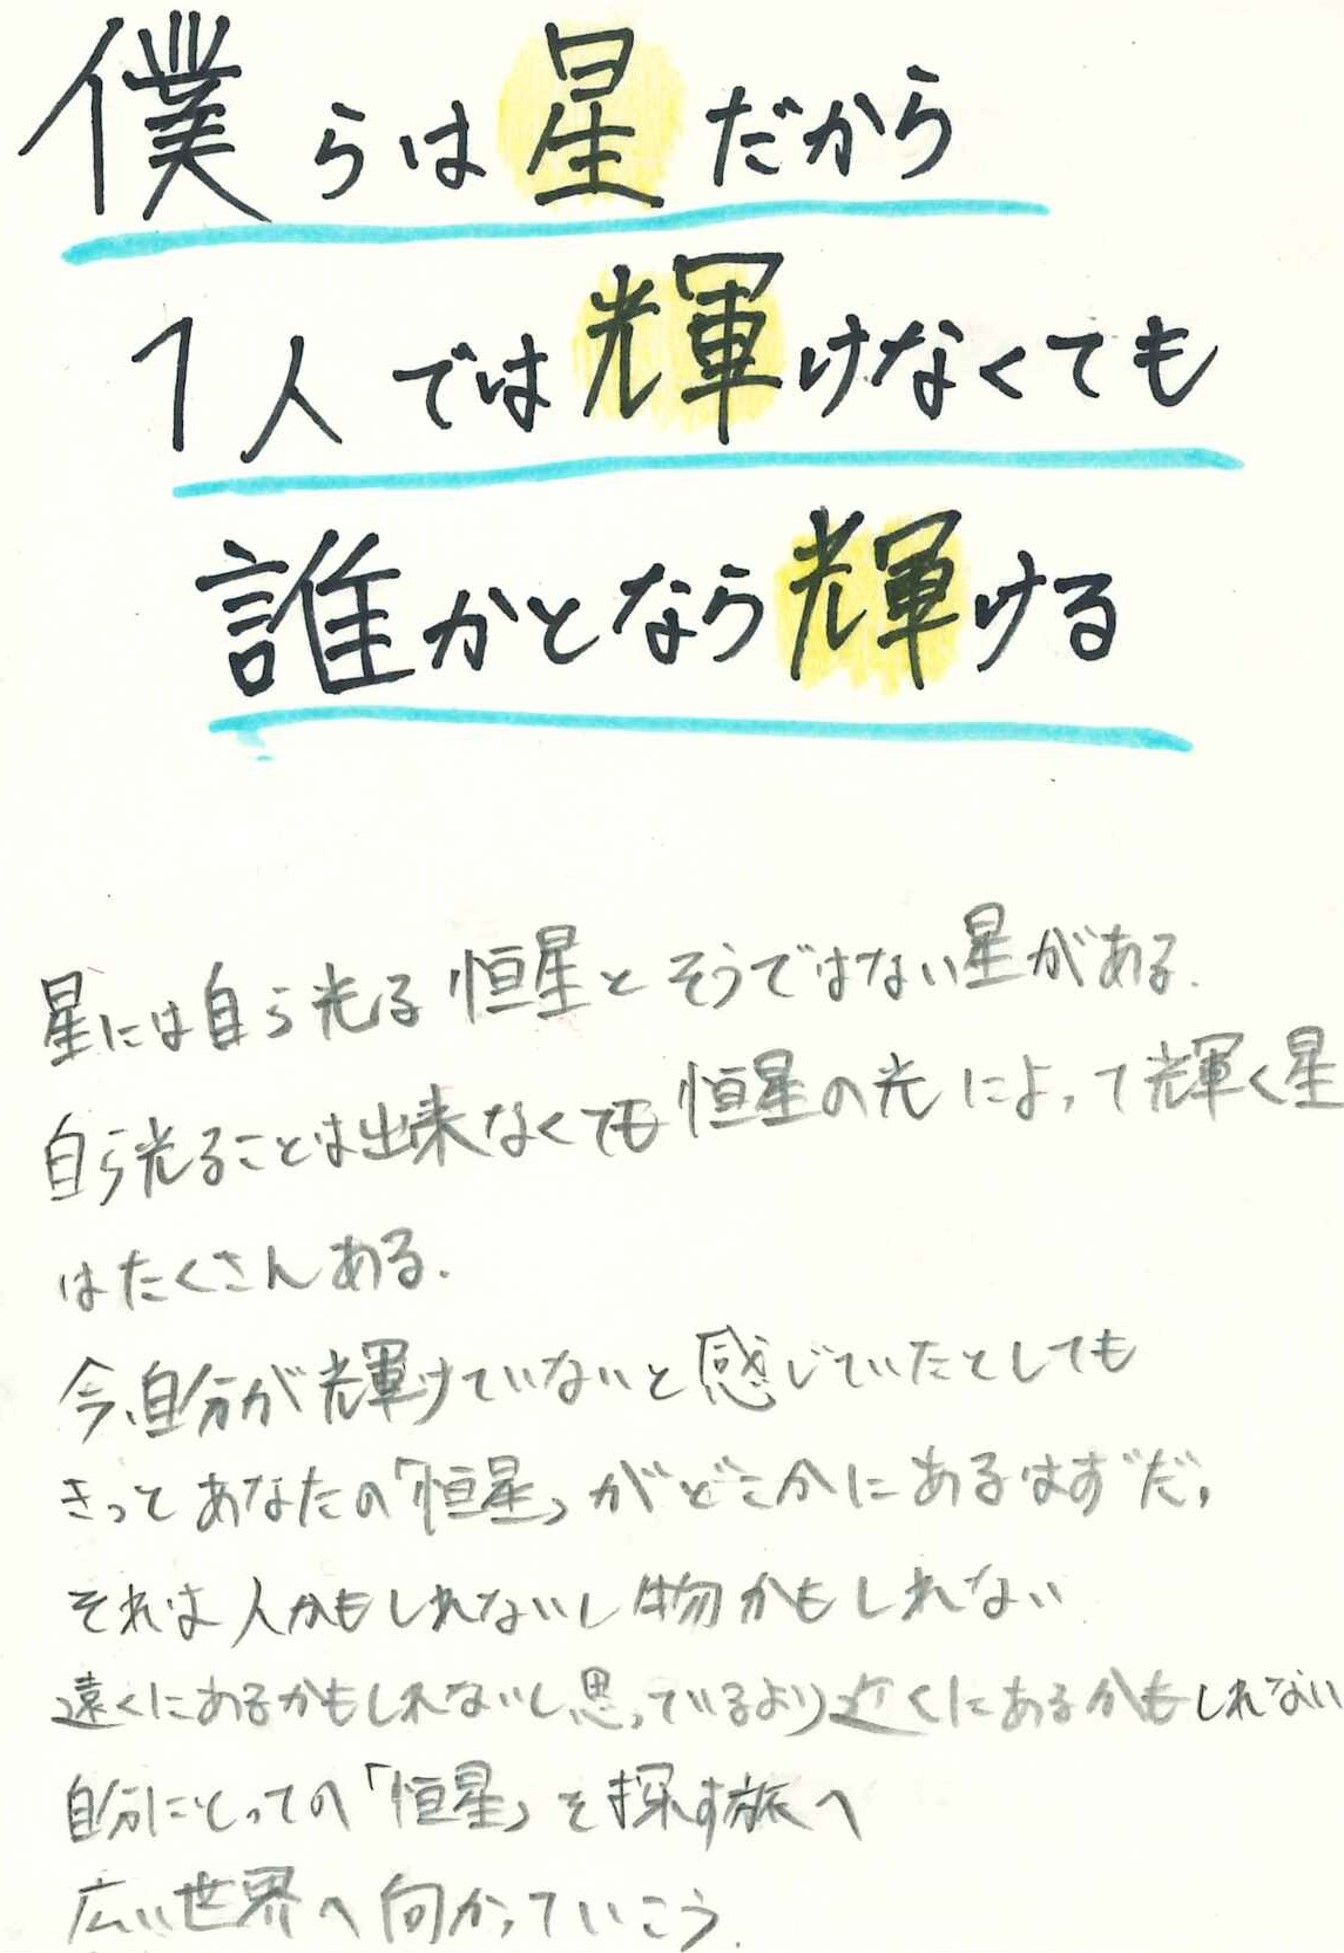 僕らは星だから
1人では輝けなくても
誰かとなら輝ける
星には自ら光る恒星とそうではない星がある.
自ら光ることは出来なくても恒星の光によって輝く星
はたくさんある.
今、自分が輝けていないと感じていたとしても
きってあなたの「恒星」がどこかにあるはずだ,
それは人かもしれないし物かもしれない
遠くにあるかもしれないし思っているより近くにあるかもしれない
自分にとっての「恒星」を探す旅へ
広い世界へ向かっていこう.